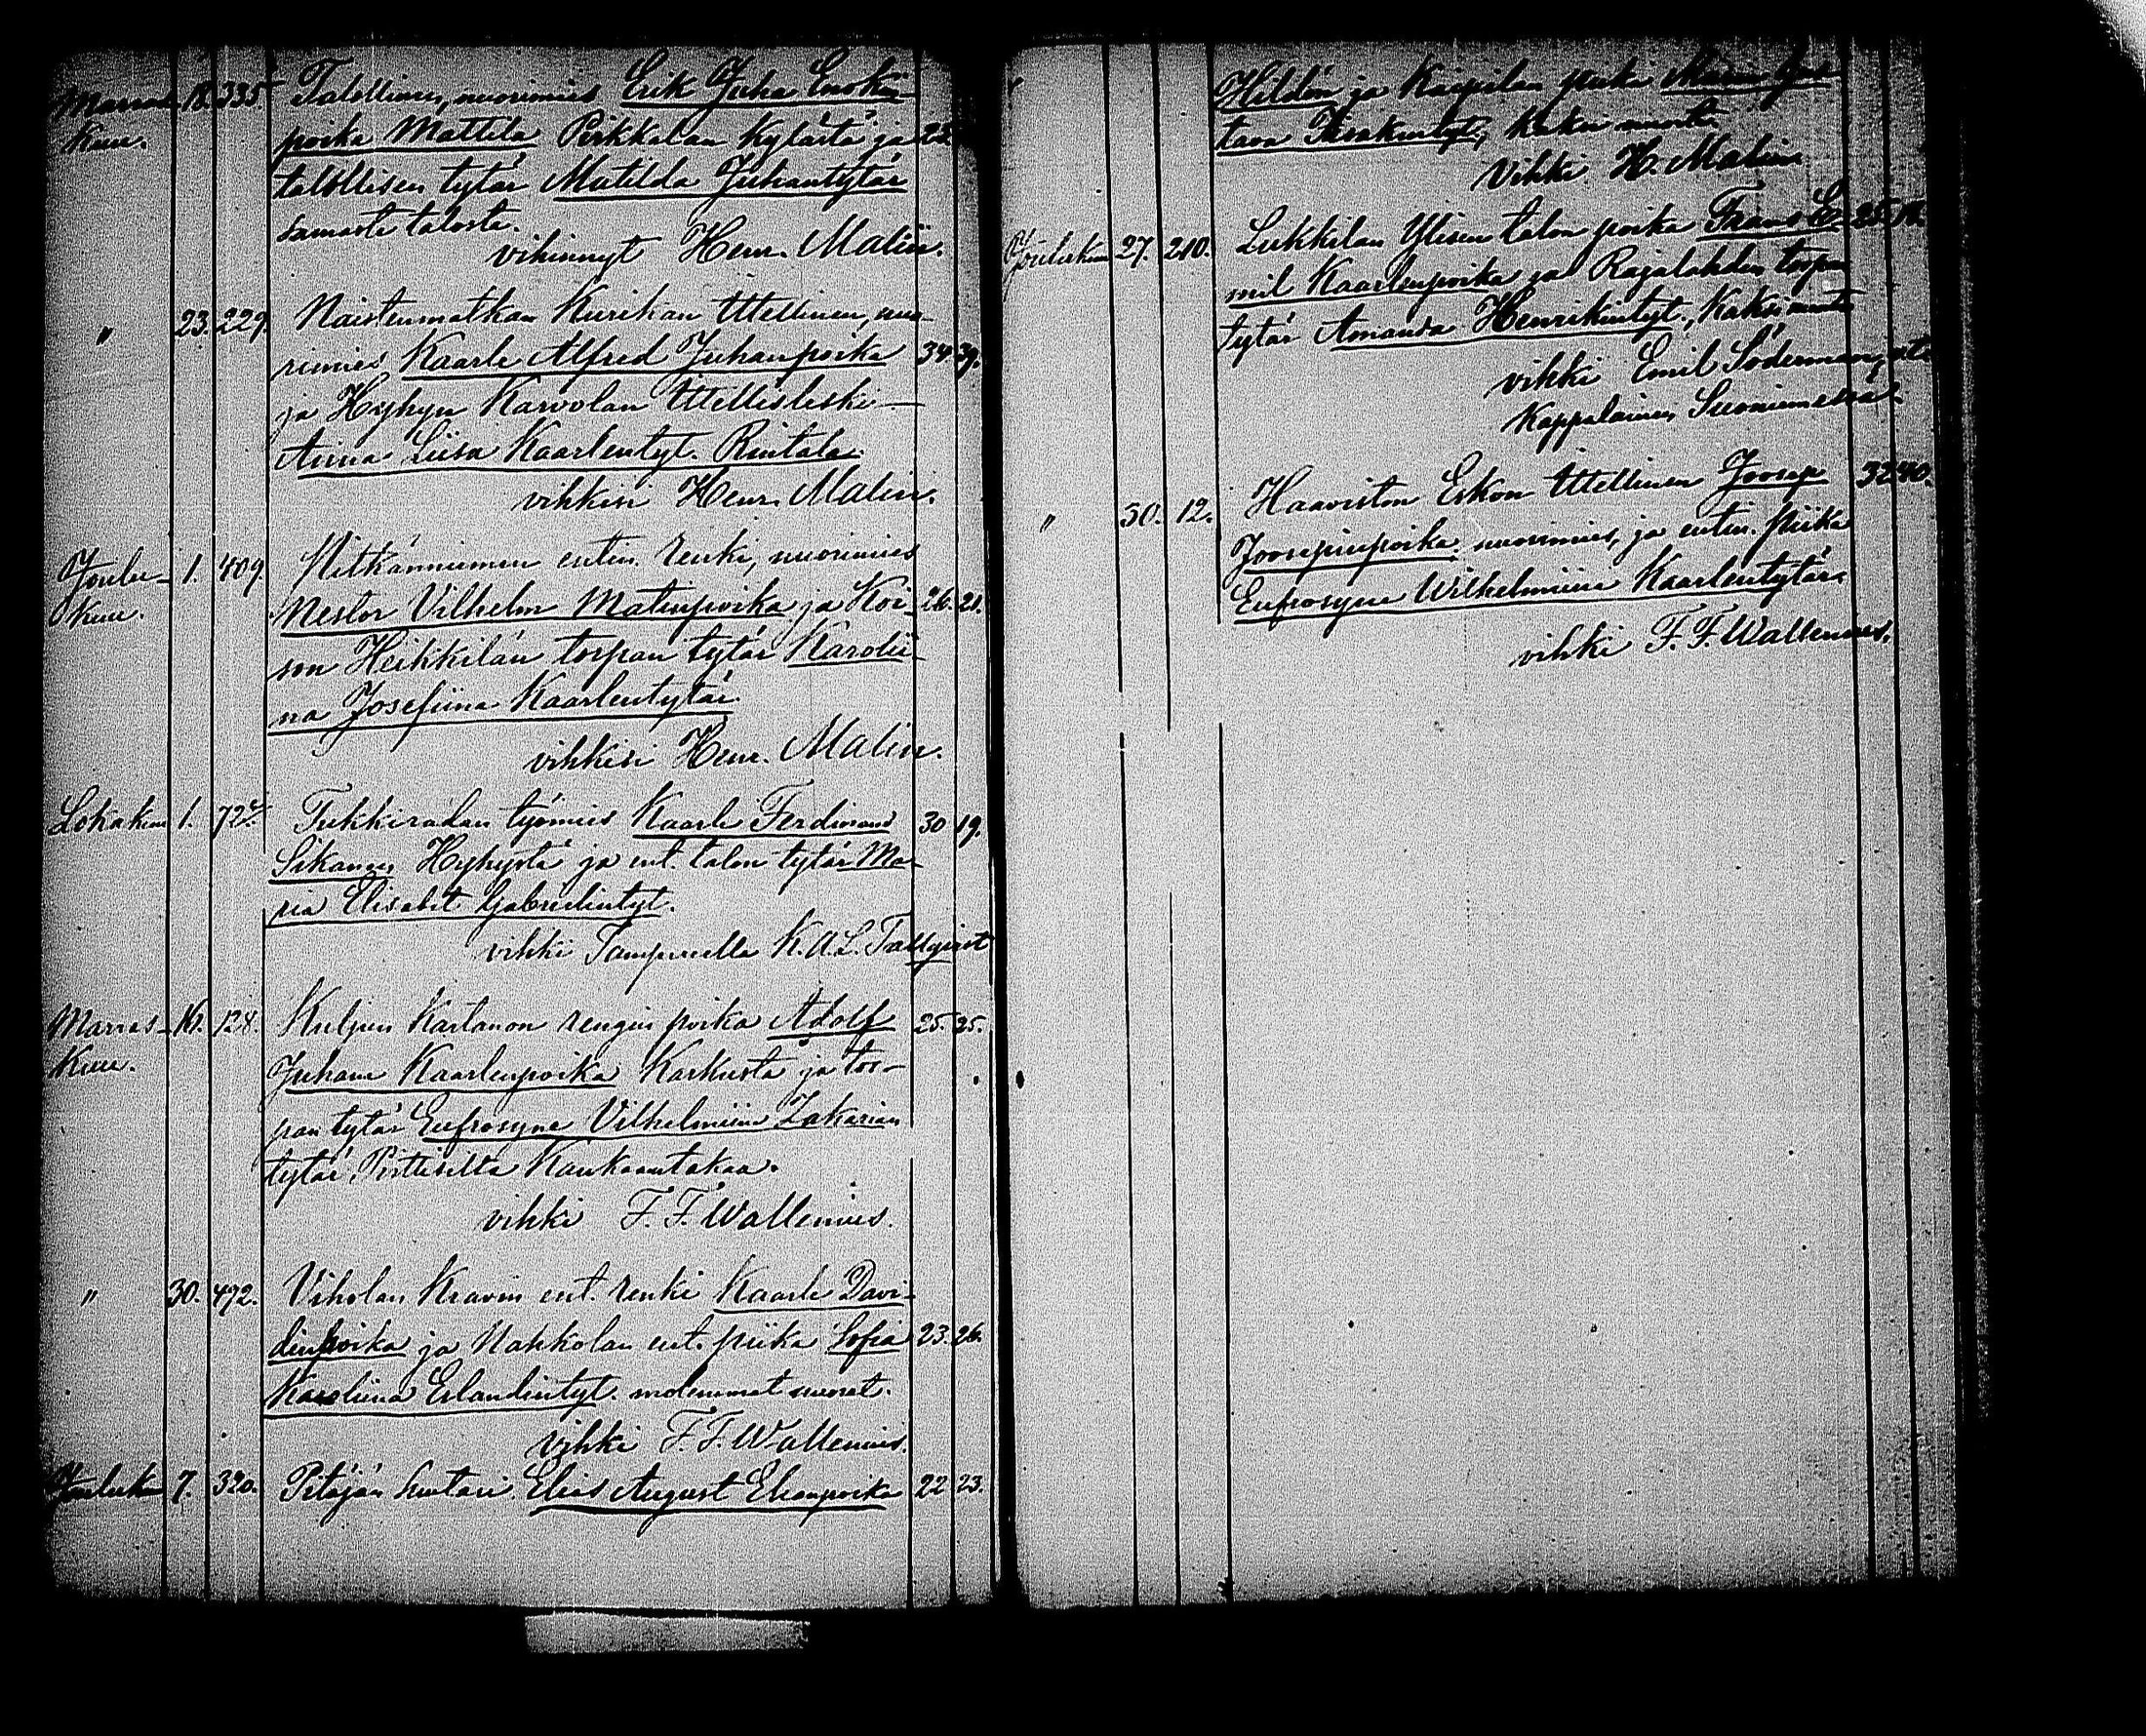 Marras- 18. 335 Talollinen, nuorimies Erik Juha Enokin-
kuu. poika Mattila Pirkkalan kylästä ja 22
talollisen tytär Matilda Juhantytär
samasta talosta.
vihinnyt Henr. Malin.
" 23. 229. Naistenmatkan Kurikan Ittellinen, nuo-
rimies Kaarle Alfred Juhanpoika 34 39.
ja Hyhyn Karvolan Ittellisleski
Anna Liisa Kaarlentyt. Rintala.
vihkisi Henr. Malin.
Joulu- 1. 409. Pitkänniemen entin. renki, nuorimies
kuu. Nestor Vilhelm Matinpoika ja Koi- 26. 21.
son Heikkilän torpan tytär Karolii-
na Josefiina Kaarlentytär
vihkisi Henr. Malin.
Lokakuu 1. 72. Tukkiradan työmies Kaarle Ferdinand 30 19.
Sikanen Hyhystä ja ent. talon tytär Ma-
ria Elisabet Gabrielintyt.
vihki Tampereella K. A. L. Tallqvist
Marras- 16. 128. Kuljun Kartanon rengin poika Adolf 25. 25.
kuu. Juhani Kaarlenpoika Karkusta ja tor-
pan tytär Eufrosyne Vilhelmiina Zakarian
tytär Kankaantakaa.
vihki F. F. Wallenius.
" 30. 492. Viholan Kravin ent. renki Kaarle Davi-
dinpoika ja Nahkolan ent. piika Sofia 23. 26.
Karoliina Erlandintyt. molemmat nuoret.
vihki F. F. Wallenius.
Jouluk 7. 320. Pitäjän Suutari Elias August Elianpoika 22 23.
Heldén ja Kaipilan piika
tava Isakintyt., kaksi nuorta
Vihki H. Malin
Joulukuu 27. 210. Lukkilan Ylisen talon poika Frans E- 25
mil Kaarlenpoika ja Rajalahden torpan
tytär Amanda Henrikintyt., Kaksi nuorta
vihki Emil Söderman,
Kappalainen Suoniemessä.
" 30. 12. Haaviston Eskon Ittellinen Joosep 32 40.
Joosepinpoika nuorimies, ja entin. piika
Eufrosyne Wilhelmiina Kaarlentytär.
vihki F. F. Wallenius.